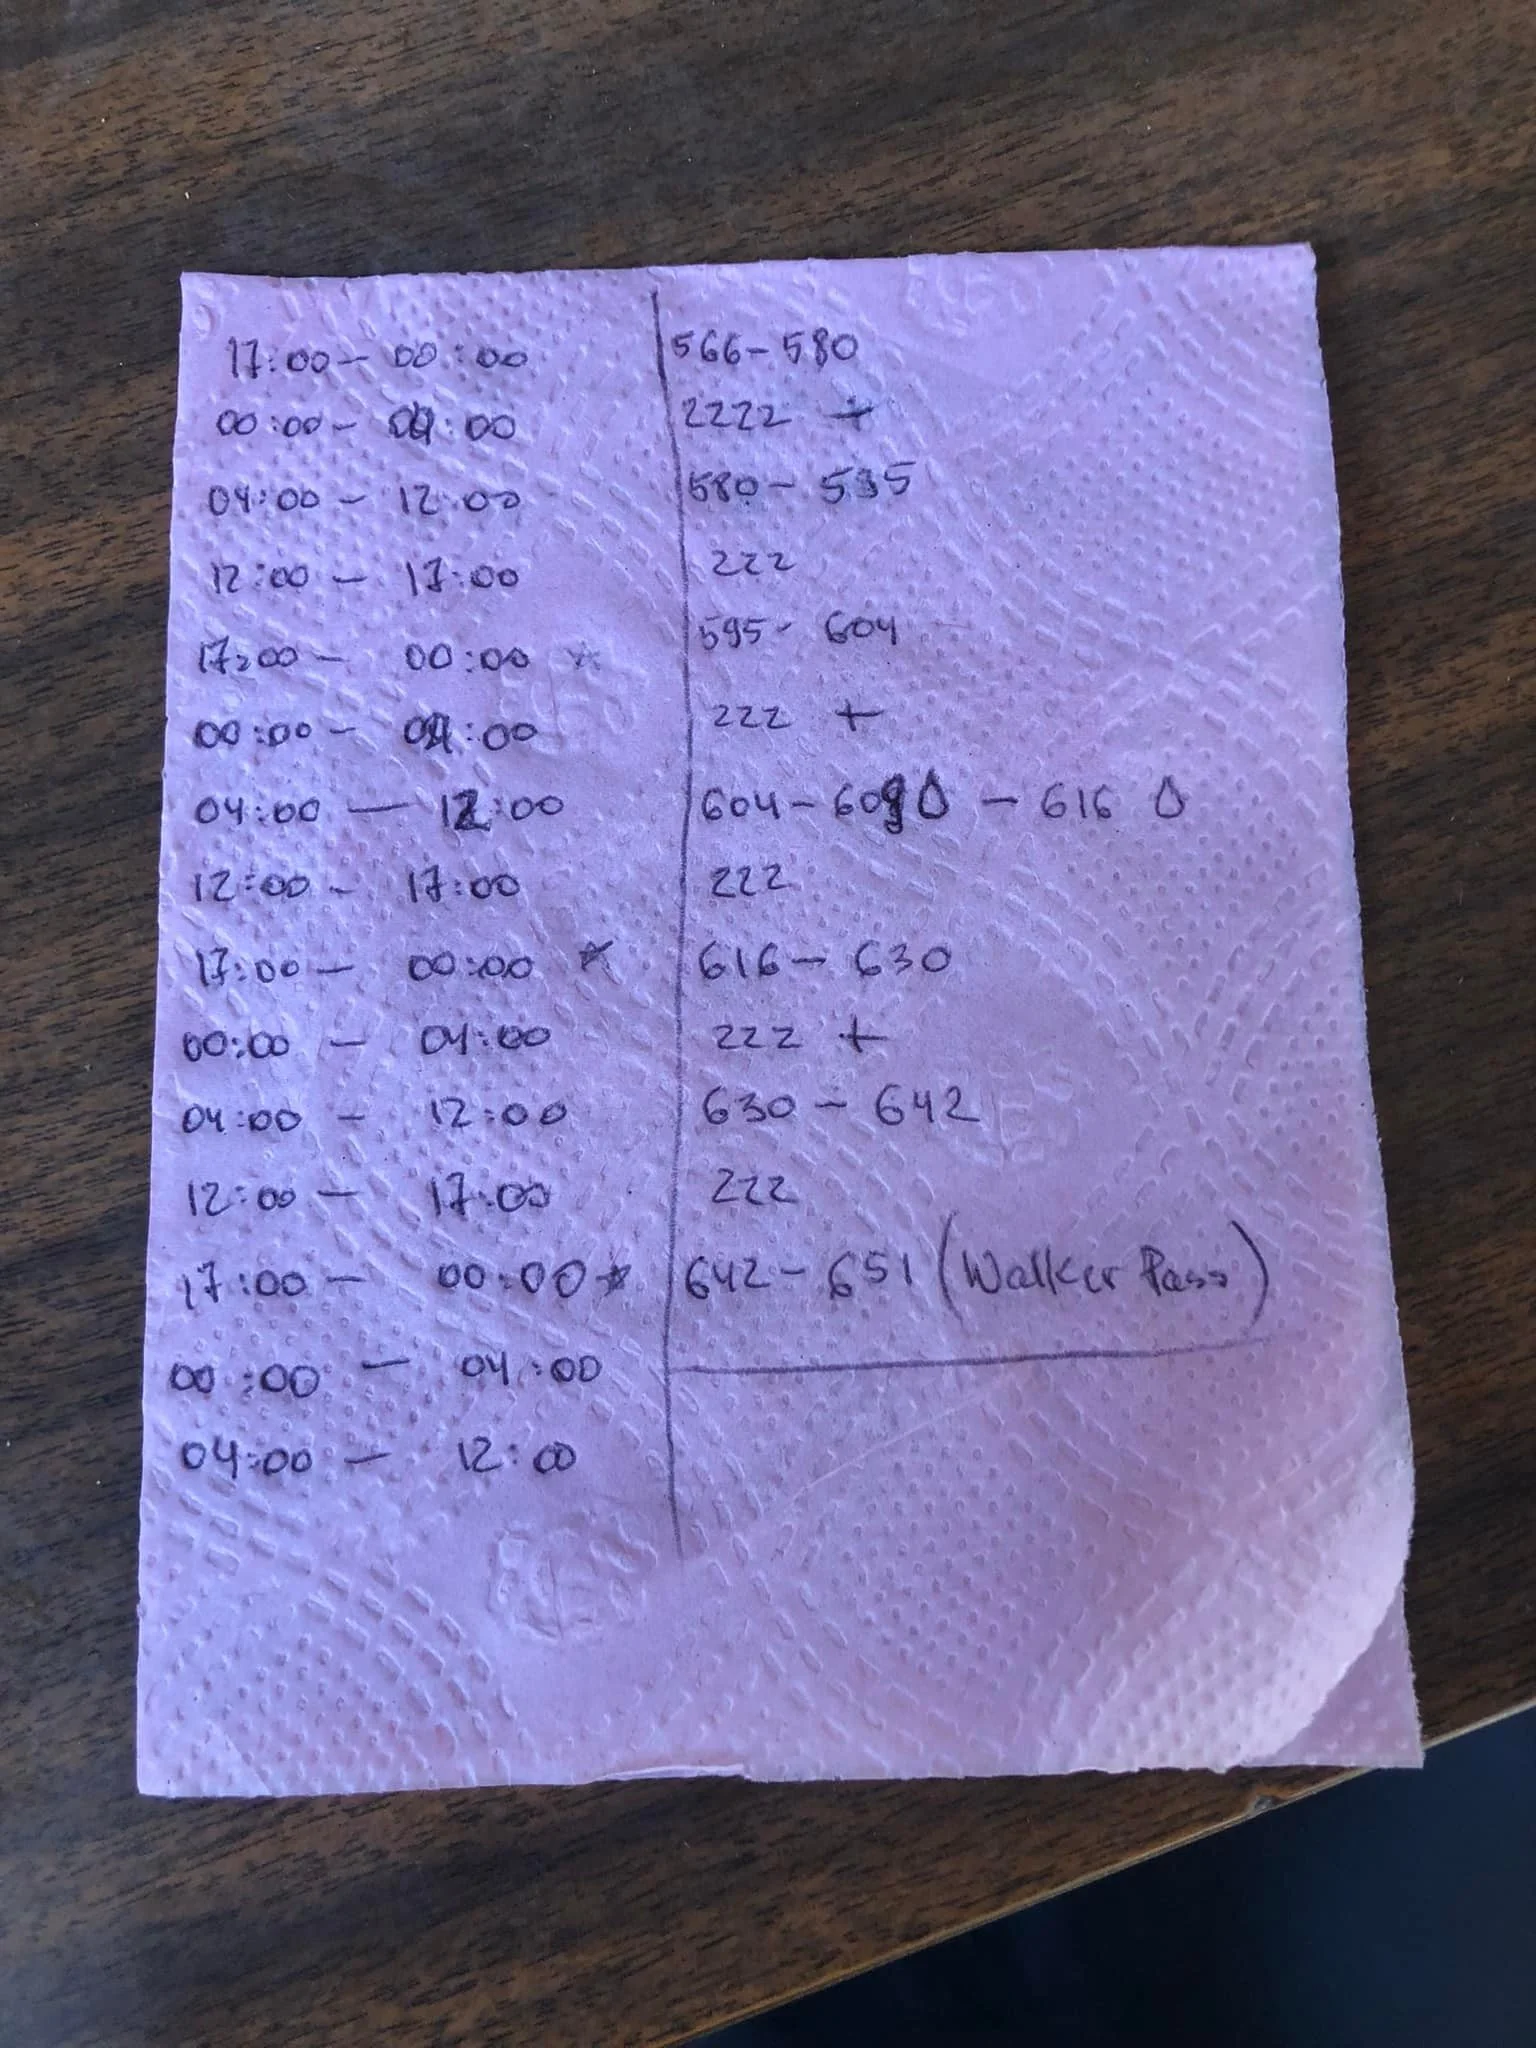 17:00 - 00:00 566 - 580
00:00 - 04:00 2222 +
04:00 - 12:00 580 - 595
12:00 - 17:00 222
17:00 - 00:00 * 595 - 604
00:00 - 04:00 222 +
04:00 - 12:00 604 - 609 💧 - 616 💧
12:00 - 17:00 222
17:00 - 00:00 * 616 - 630
00:00 - 04:00 222 +
04:00 - 12:00 630 - 642
12:00 - 17:00 222
17:00 - 00:00 * 642 - 651 (Walker Pass)
00:00 - 04:00
04:00 - 12:00